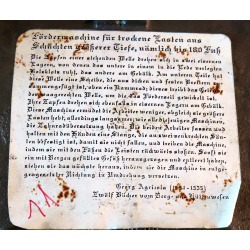 Fördermaschine für trockene Lasten aus
Schächten größerer Tiefe, nämlich bis 180 Fuß
Die Zapfen einer stehenden Welle drehen sich in zwei eisernen
Lagern, von denen das untere in einem in die Sohle verlegten
Holzklotz ruht, das andere am Gebälk. Am unteren Ende hat
diese Welle eine Scheibe, die aus dichten und festen Brettern zu-
sammengefügt ist, oben ein Kammrad; dieses treibt das Getriebe
der waagerechten Welle, um die das Förderseil gewickelt ist.
Ihre Zapfen drehen sich ebenfalls in eisernen Lagern am Gebälk.
Diese Maschine ermüdet die Arbeiter weniger, obgleich sie größere
Lasten hebt, allerdings langsamer, wie alle Maschinen, die eine
Zahnradübersetzung haben. Die beiden Arbeiter fassen und
halten mit den Händen eine Stange, die an
befestigt ist, damit sie nicht fallen, und treiben die Maschine,
indem sie mit den Füßen die Leisten rückwärts stoßen. Sooft sie
ein mit Bergen gefülltes Gefäß herausgezogen und geleert haben,
ziehen sie das nächste heraus, indem sie die Maschine in entge-
gengesetzter Richtung in Umdrehung versetzen.
Georg Agricola (1494-1555)
Zwölf Bücher vom Berg- und Hüttenwesen